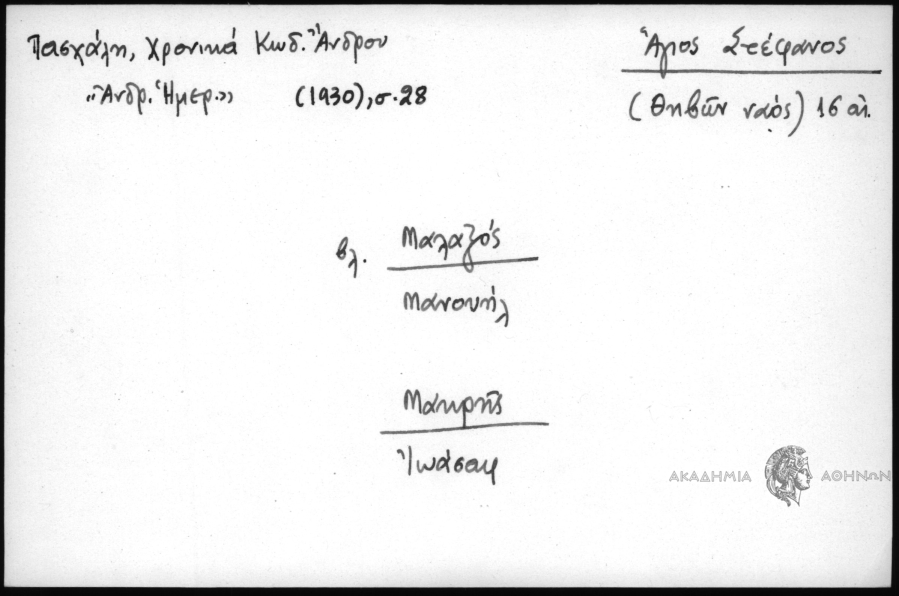 Πασχάλη, Χρονικά Κωδ. Ἄνδρου
«Ἀνδρ. Ἡμερ.» (1930), σ. 28
Ἅγιος Στέφανος
(Θηβῶν ναός) 16 αἰ.
βλ. Μαλαξός
Μανουήλ
Μακρῆς
Ἰωάσαφ
ΑΚΑΔΗΜΙΑ ΑΘΗΝΩΝ